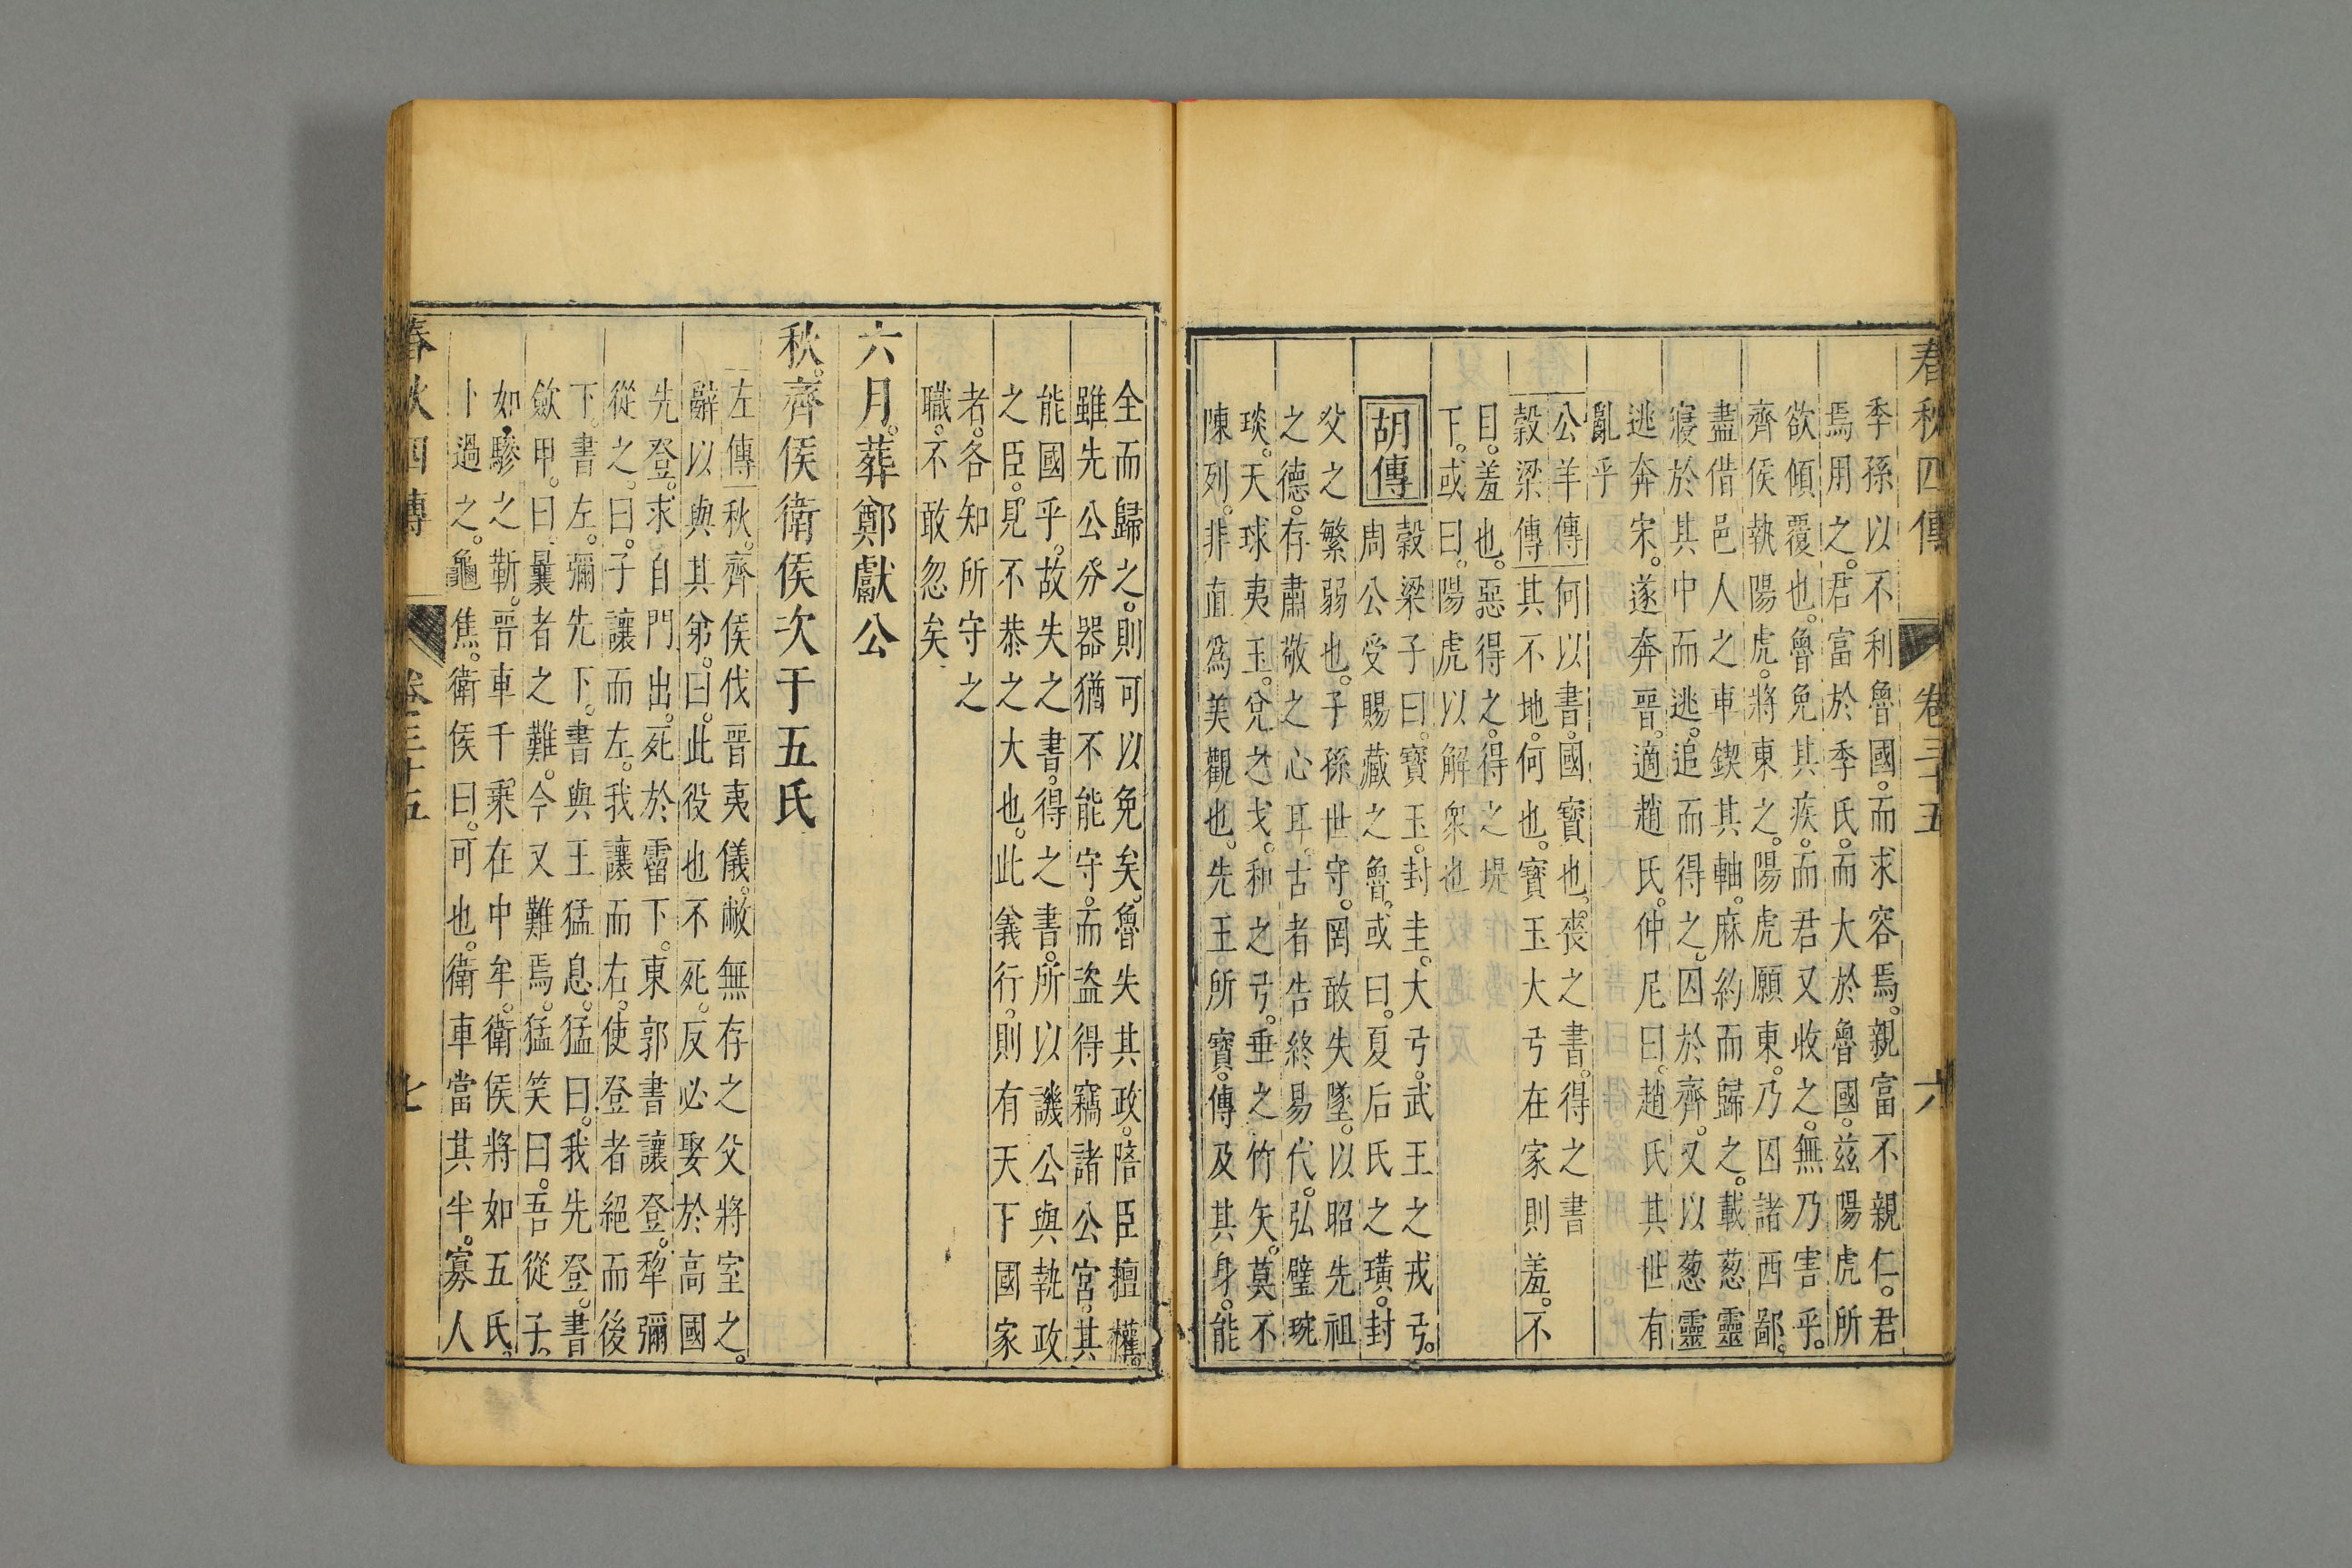 春秋四傳 卷三十五 六
季孫以不利魯國而求容焉親富不親仁君
焉用之君富於季氏而大於魯國茲陽虎所
欲傾覆也魯免其疾而君又收之無乃害乎
齊侯執陽虎將東之陽虎願東乃囚諸西鄙
盡借邑人之車鍥其軸麻約而歸之載葱靈
寢於其中而逃追而得之囚於齊又以葱靈
逃奔宋遂奔晉適趙氏仲尼曰趙氏其世有
亂乎
公羊傳何以書國寶也喪之書得之書
穀梁傳其不地何也寶玉大弓在家則羞不
目羞也惡得之得之堤
下或曰陽虎以解衆也
胡傳
穀梁子曰寶玉封圭大弓武王之戎弓
周公受賜藏之魯或曰夏后氏之璜封
父之繁弱也子孫世守罔敢失墜以昭先祖
之德存肅敬之心耳古者告終易代弘璧琬
琰天球夷玉兊之戈和之弓垂之竹矢莫不
陳列非直爲美觀也先王所寶傳及其身能
全而歸之則可以免矣魯失其政陪臣擅權
雖先公分器猶不能守而盜得竊諸公宮其
能國乎故失之書得之書所以譏公與執政
之臣見不恭之大也此義行則有天下國家
者各知所守之
職不敢忽矣
六月葬鄭獻公
秋齊侯衛侯次于五氏
左傳秋齊侯伐晉夷儀敝無存之父將室之
辭以與其弟曰此役也不死反必娶於高國
先登求自門出死於霤下東郭書讓登犂彌
從之曰子讓而左我讓而右使登者絕而後
下書左彌先下書與王猛息猛曰我先登書
斂甲曰曩者之難今又難焉猛笑曰吾從子
如驂之靳晉車千乘在中牟衛侯將如五氏
卜過之龜焦衛侯曰可也衛車當其半寡人
春秋四傳 卷三十五 七